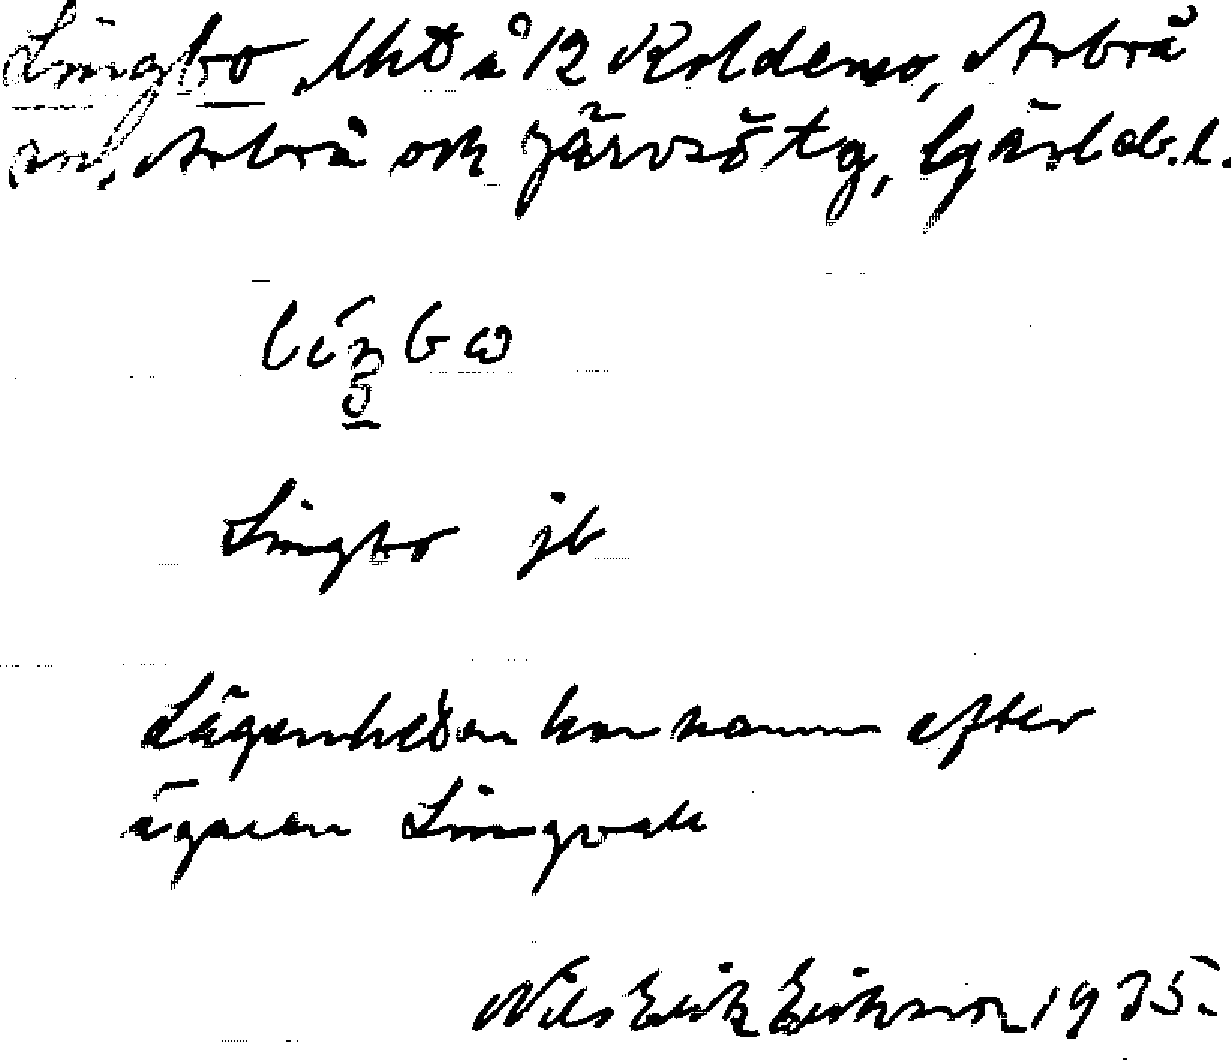 Lingbo, lht å 12 Koldemo, Arbrå
sn, Arbrå och Järvsö tg, Gävleb. l.
Lingbo jb
Lägenheten har namn efter
ägaren Lingvall
Nils Erik Eriksson 1935.